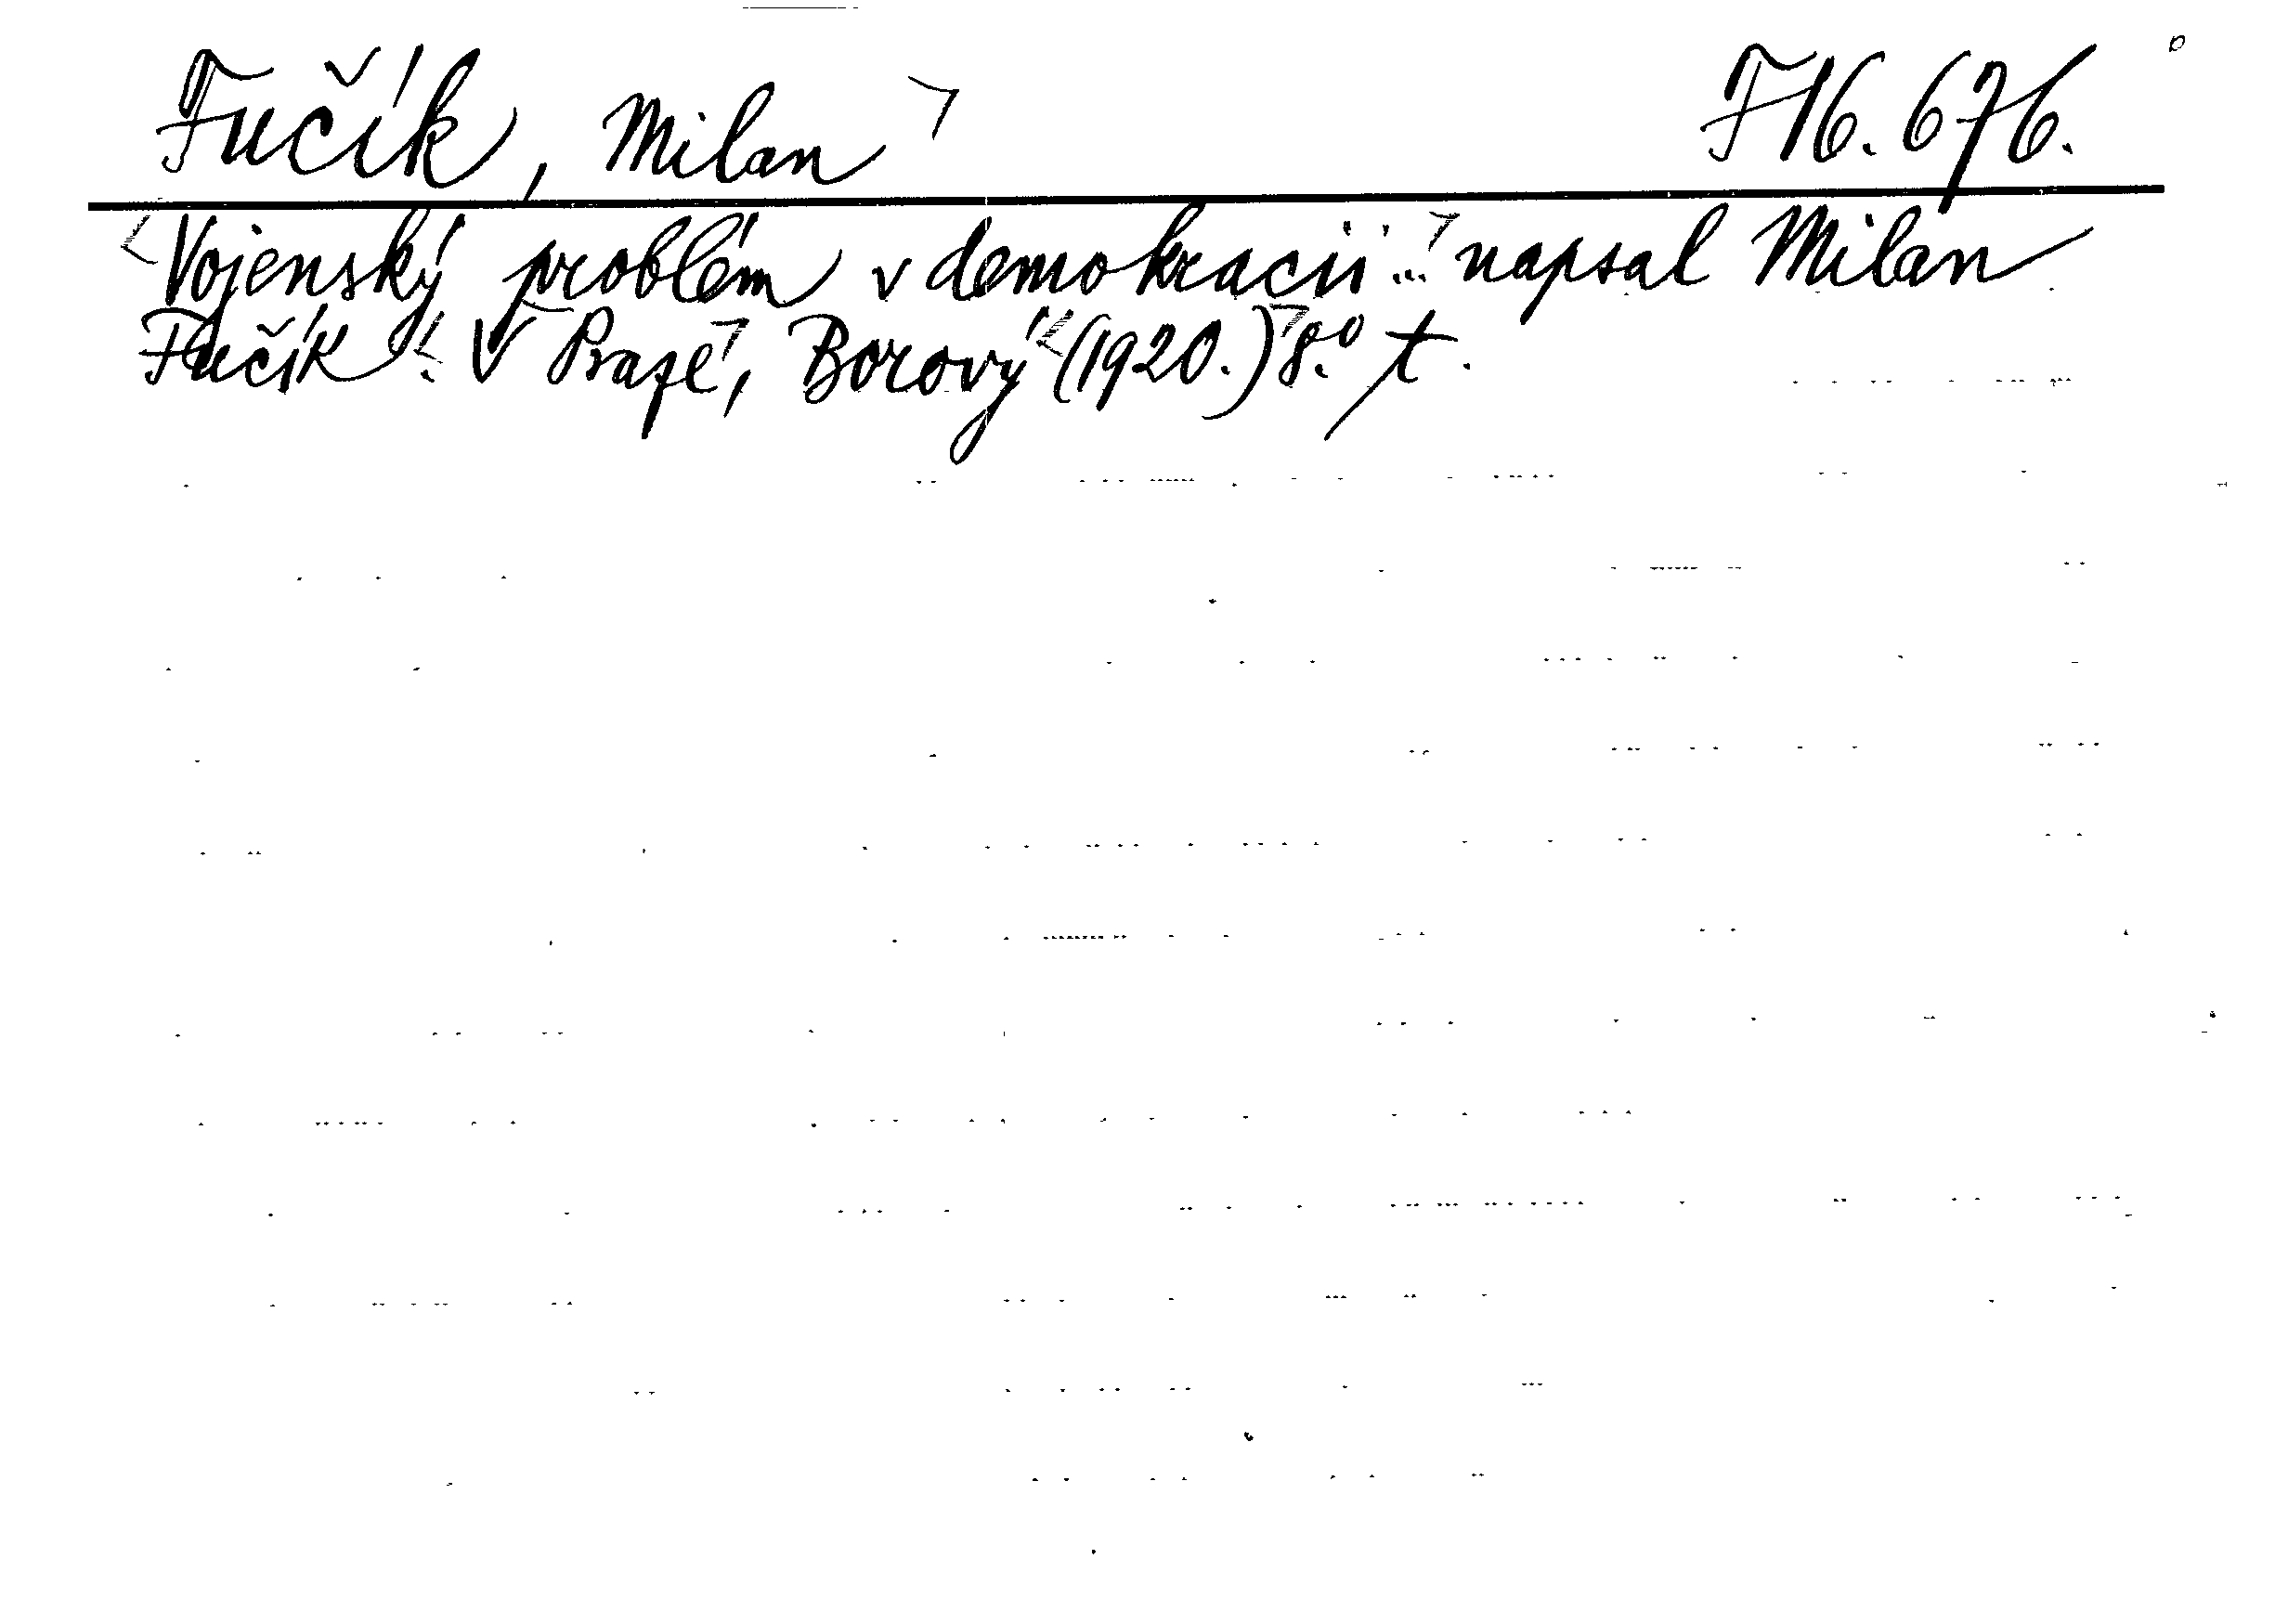 Fučík, Milan F 16.676.
Vojenský problém v demokracii... napsal Milan
Fučík. V Praze, Borový (1920.) 8.° t.